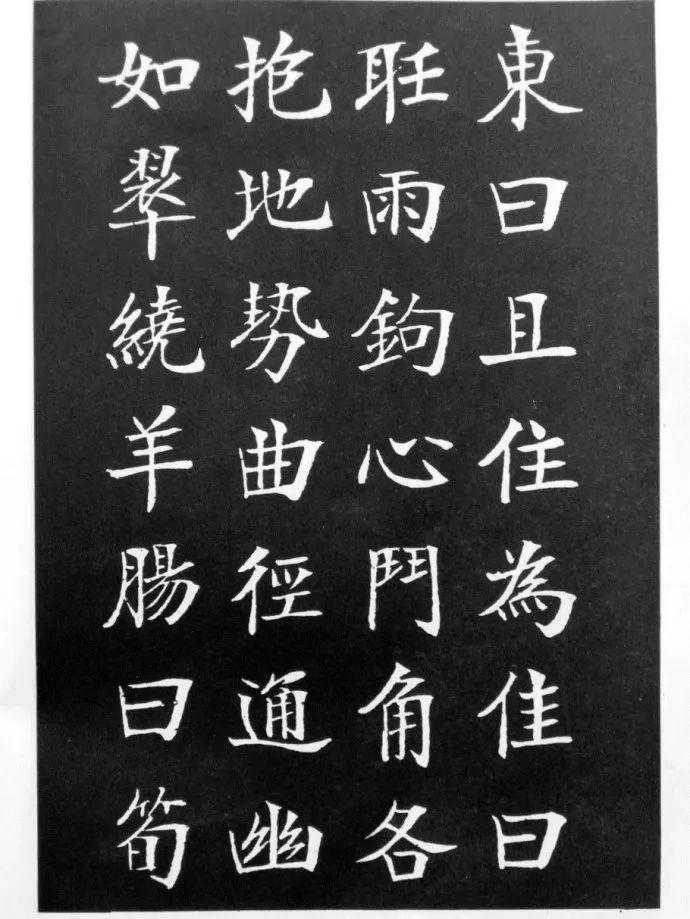 東曰且住為佳曰
聽雨鉤心鬥角各
抱地势曲徑通幽
如翠繞羊腸曰筍